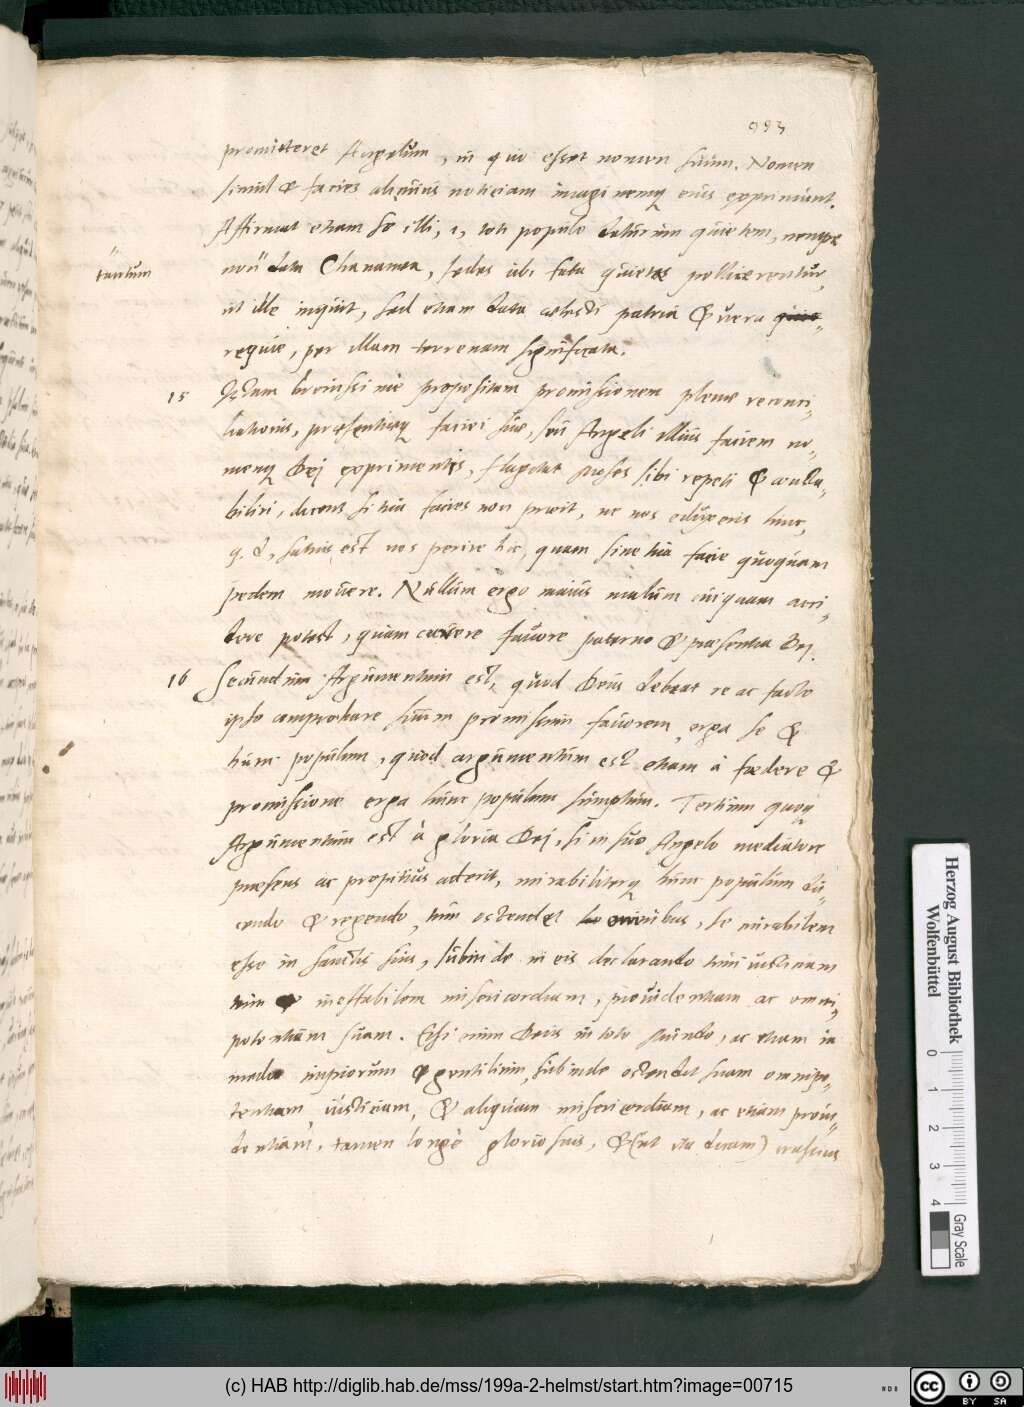 993
promitteret Angelum, in quo esset nomen suum. Nomen
simul & facies alicuius noticiam imaginemq; eius exprimunt.
Affirmat etiam se illi, i, toti populo daturum quietem, nempe
non data Chananaea, sedes ubi fuda quietas pollicerentur,
tantum
ut ille inquit, sed etiam data coelesti patria & vera
requie, per illam terrenam significata.
15 Istam brevissime propositam promissionem plenae reconci-
liationis, praesentiaeq; faciei suae, seu Angeli illius faciem no-
menq; Dei exprimentis, flagitat Moses sibi repeti &
biliri, dicens si tua facies non praeit, ne nos eduxeris hinc,
q. d, satius est nos perire hic, quam sine tua facie quoquam
pedem movere. Nullum ergo maius malum cuiquam acci-
dere potest, quam carere favore paterno & praesentia Dei.
16 Secundum Argumentum est, quod Deus debeat re ac facto
ipso comprobare suum promissum favorem, erga se &
hunc populum, quod argumentum est etiam à foedere &
promissione erga hunc populum sumptum. Tertium quoq;
Argumentum est à gloria Dei, si in suo Angelo mediatore
praesens ac propitius aderit, mirabiliterq; hunc populum du-
cendo & regendo, tum ostendet omnibus, se mirabilem
esse in sanctis suis, subinde in eis declarando tum iusticiam
tum ineffabilem misericordiam, providentiam ac omni-
potentiam suam. Etsi enim Deus in toto mundo, ac etiam in
medio impiorum & gentilium, subinde ostendit suam omnipo-
tentiam iusticiam, & aliquam misericordiam, ac etiam provi-
dentiam, tamen longè gloriosius, & (ut ita dicam)
Herzog August Bibliothek
Wolfenbüttel
0 1 2 3 4
Gray Scale
(c) HAB http://diglib.hab.de/mss/199a-2-helmst/start.htm?image=00715
cc BY SA